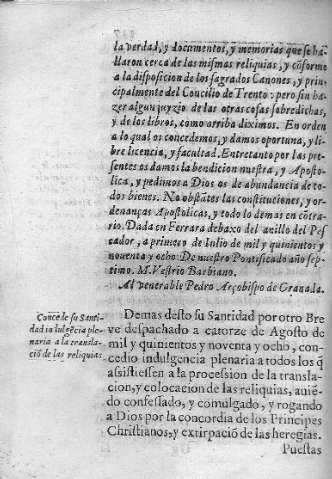 la verdad, y documentos, y memorias que se ha-
llaron cerca de las mismas reliquias, y cõforme
a la disposicion de los sagrados Canones, y prin-
cipalmente del Concilio de Trento: pero sin ha-
zer algun juyzio de las otras cosas sobredichas,
y de los libros, como arriba diximos. En orden
a lo qual os concedemos, y damos oportuna, y li-
bre licencia, y facultad. Entretanto por las pre-
sentes os damos la bendicion nuestra, y Aposto-
lica, y pedimos a Dios os de abundancia de to-
dos bienes. No obstãtes las constituciones, y or-
denanças Apostolicas, y todo lo demas en cõtra-
rio. Dada en Ferrara debaxo del anillo del Pes
cador, a primero de Iulio de mil y quinientos y
noventa y ocho. De nuestro Pontificado año sep-
timo. M. Vestrio Barbiano.
Al venerable Pedro Arçobispo de Granada.
Concede su Santi-
dad indulgẽcia ple-
naria a la transla-
ciõ de las reliquias.
Demas desto su Santidad por otro Bre
ve despachado a catorze de Agosto de
mil y quinientos y noventa y ocho, con-
cedio indulgencia plenaria a todos los q̃
assistiessen a la procession de la transla-
cion, y colocacion de las reliquias, aviẽ-
do confessado, y comulgado, y rogando
a Dios por la concordia de los Principes
Christianos, y extirpaciõ de las heregias.
Puestas